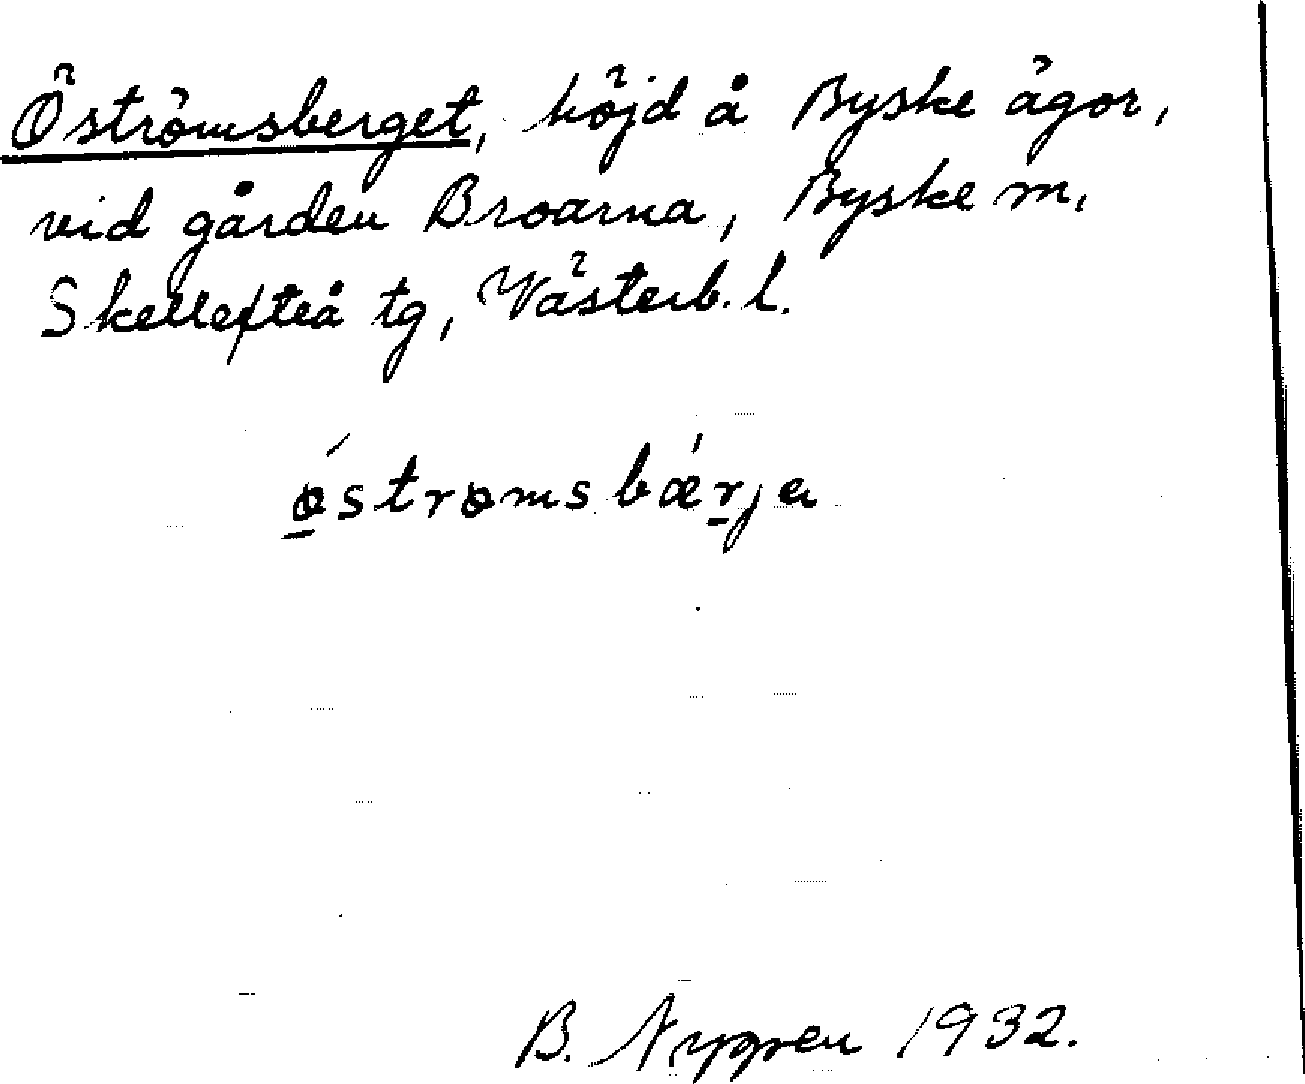 Öströmsberget, höjd å Byske ägor,
vid gården Broarna, Byske m.
Skellefteå tg, Västerb. l.
ǿ̲strømsbǽr̲ja
B. Nygren 1932.